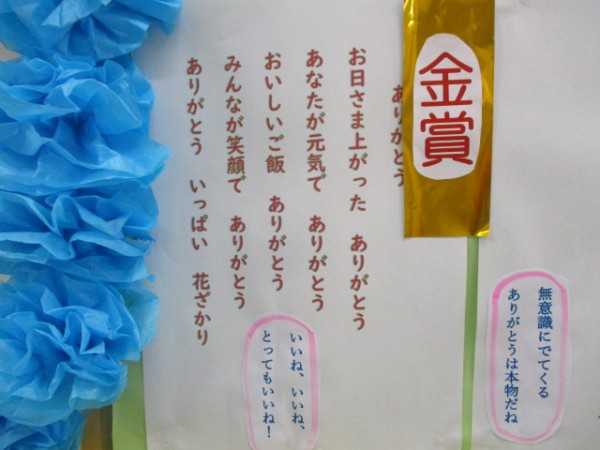 金賞
ありがとう
お日さま上がった ありがとう
あなたが元気で ありがとう
おいしいご飯 ありがとう
みんなが笑顔で ありがとう
ありがとう いっぱい 花ざかり
無意識にでてくる
ありがとうは本物だね
いいね、いいね、
とってもいいね！